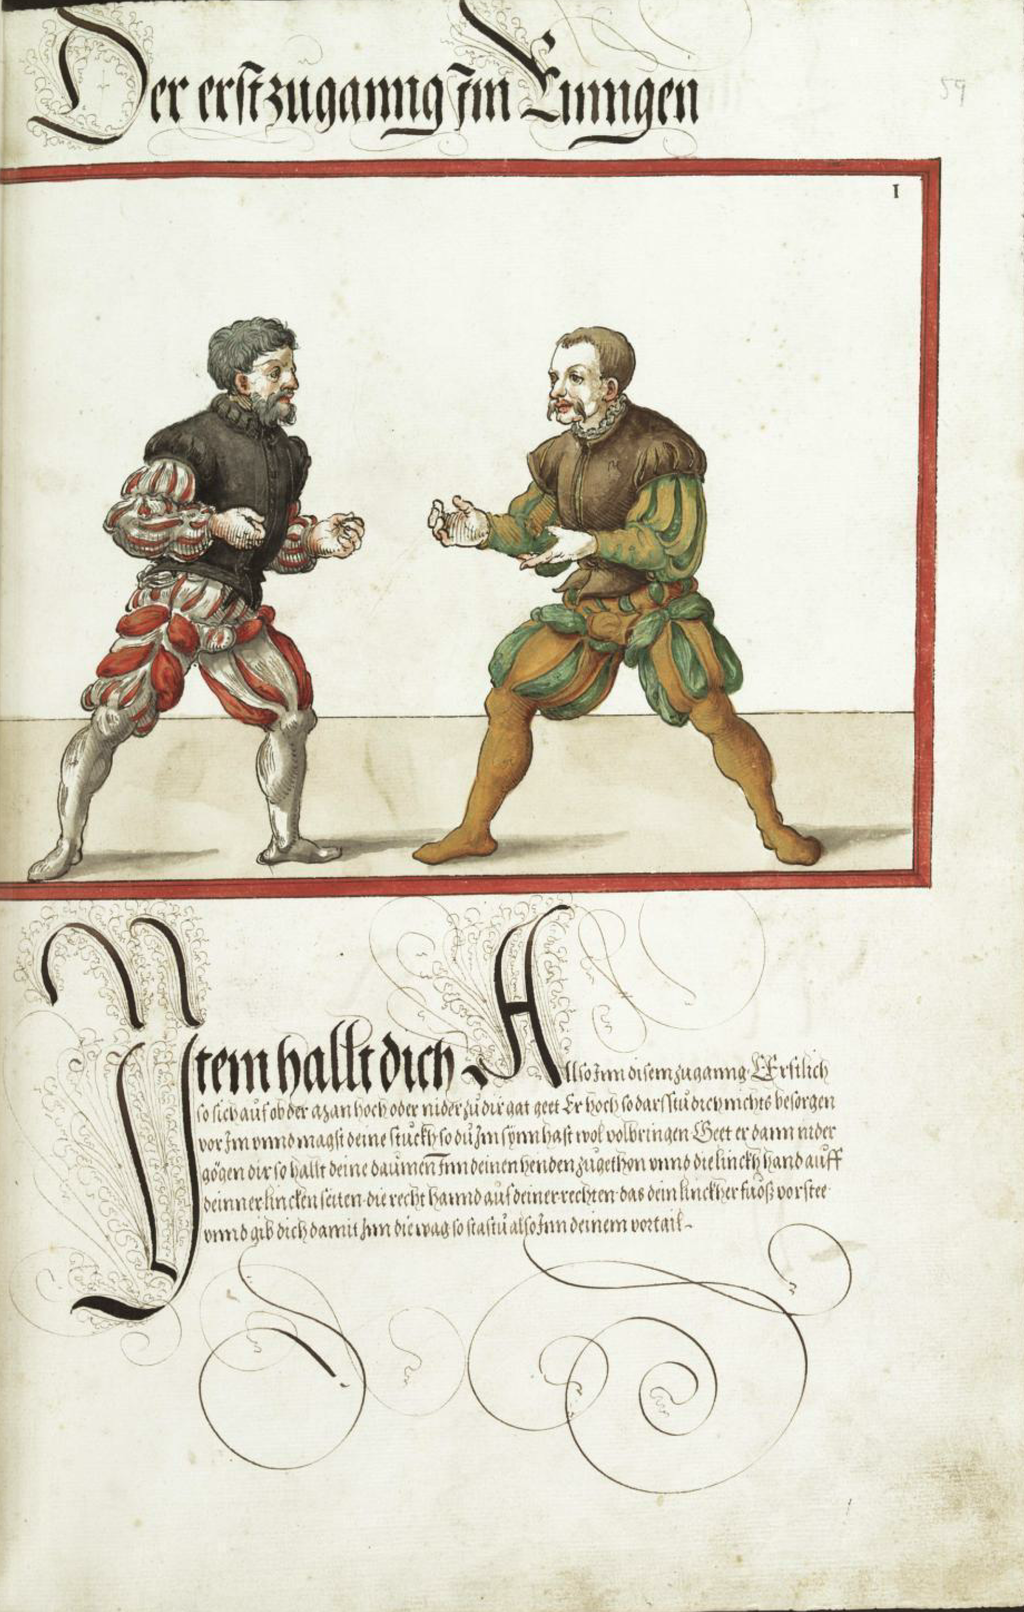 Der erst zuganng Im Rinngen
59
I
Item hallt dich Allso Inn disem zuganng Erstlich
so sich auf ob der man hoch oder nider zu dir gat geet Er hoch so darfstu dich nichts besorgen
vor Im unnd magst deine stuckh so du Im synn hast wol volbringen Geet er dann nider
gögen dir so hallt deine daumen Inn deinen henden zugethon unnd die linckh hand auff
deinner lincken seiten die recht hannd auf deiner rechten das dein linckher fuoß vor stee
unnd gib dich damit Inn die wag so stastu also Inn deinem vortail